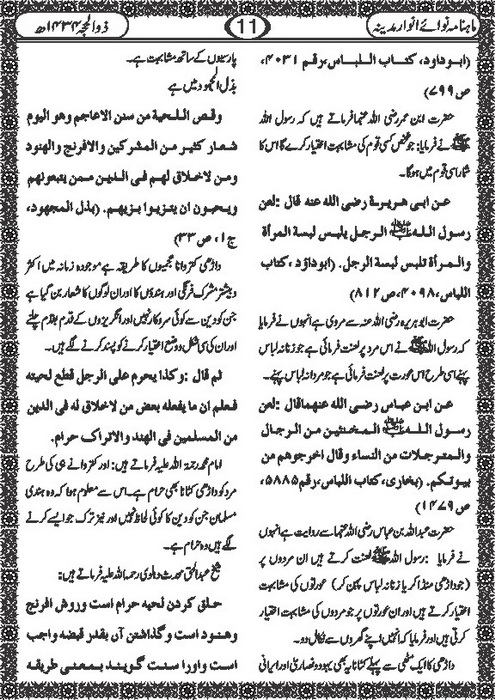 ماہنامہ نوائے انوار مدینہ
11
ذوالحجہ ۱۴۳۴ھ
(ابوداود، کتاب اللباس،رقم ۴۰۳۱،
ص۷۹۹)
حضرت ابن عمر رضی اللہ عنہما فرماتے ہیں کہ رسول اللہ
ﷺ نے فرمایا: جو شخص کسی قوم کی مشابہت اختیار کرے گا اس کا
شمار اسی قوم میں ہوگا۔
عن ابی هريرة رضی الله عنه قال :لعن
رسول اللهﷺ الرجل يلبس لبسة المرأة
والمرأة تلبس لبسة الرجل. (ابوداؤد ،کتاب
اللباس،۴۰۹۸،ص۸۱۲)
حضرت ابوہریرہ رضی اللہ عنہ سے مروی ہے انہوں نے فرمایا
کہ رسول اللہﷺ نے اس مرد پر لعنت فرمائی ہے جو زنانہ لباس
پہنے اسی طرح اس عورت پر لعنت فرمائی ہے جو مردانہ لباس پہنے۔
عن ابن عباس رضی الله عنهما قال: لعن
رسول اللهﷺ المخنثين من الرجال
والمترجلات من النساء وقال اخرجوهم من
بيوتكم. (بخاری،کتاب اللباس،رقم۵۸۸۵،
ص۱۴۷۹)
حضرت عبداللہ بن عباس رضی اللہ عنہما سے روایت ہے انہوں
نے فرمایا :رسول اللہ ﷺ لعنت کرتے ہیں ان مردوں پر
(جو داڑھی منڈا کر یا زنانہ لباس پہن کر) عورتوں کی مشابہت
اختیار کرتے ہیں اور ان عورتوں پر جو مردوں کی مشابہت اختیار
کرتی ہیں اور فرمایا کہ انہیں اپنے گھروں سے نکال دو۔
داڑھی کا ایک مٹھی سے پہلے کٹانا یہ بھی یہود و نصاریٰ اور ایرانی
پارسیوں کے ساتھ مشابہت ہے۔
بذل المجہود میں ہے
وقص اللحية من سنن الاعاجم وهو اليوم
شعار كثير من المشركين والافرنج والهنود
ومن لاخلاق لهم فی الدين ممن يتبعونهم
ويحبون ان يتزيوا بزيهم. (بذل المجهود،
ج۱،ص۳۳)
داڑھی کتروانا عجمیوں کا طریقہ ہے موجودہ زمانہ میں اکثر
وبیشتر مشرک فرنگی اور ہندؤں کا شعار بن گیا ہے اور ان لوگوں کا
جن کو دین سے کوئی سروکار نہیں اور انگریزوں کے قدم بقدم چلنے
اور ان کی سی شکل و وضع اختیار کرنے کو پسند کرنے لگے ہیں۔
ثم قال :وكذا يحرم على الرجل قطع لحيته
فعلم ان ما يفعله بعض من لاخلاق له فی الدين
من المسلمين فی الهند والاتراک حرام.
امام محمد رحمۃ اللہ علیہ فرماتے ہیں: اور کتروانے ہی کی طرح
مرد کو داڑھی کٹانا بھی حرام ہے۔ اس سے معلوم ہوا کہ وہ ہندی
مسلمان جن کو دین کا کوئی لحاظ نہیں اور نیز ترک جو ایسے کرنے
لگے ہیں وہ حرام ہے۔
شیخ عبدالحق محدث دہلوی رحمہ اللہ علیہ فرماتے ہیں:
حلق كردن لحيه حرام است وروش افرنج
وهنود است وگذاشتن آن بقدر قبضه واجب
است واورا سنت گويند بمعنی طريقه